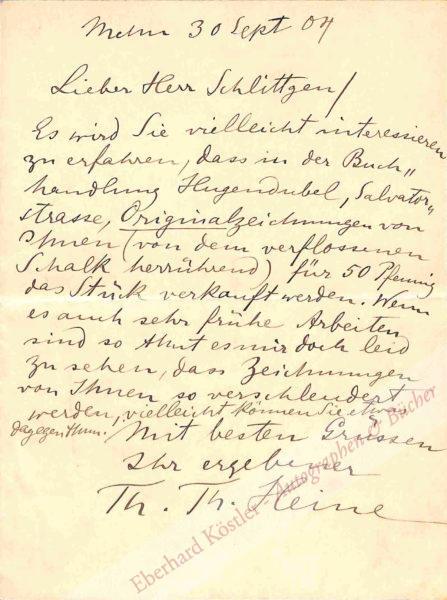 Mchn 30 Sept 04
Lieber Herr Schlittgen/
Es wird Sie vielleicht interessieren
zu erfahren, dass in der Buch„
handlung Hugendubel, Salvator„
strasse, Originalzeichnungen von
Ihnen (von dem verflossenen
Schalk herrührend) für 50 Pfennig
das Stück verkauft werden. Wenn
es auch sehr frühe Arbeiten
sind so thut es mir doch leid
zu sehen, dass Zeichnungen
von Ihnen so verschleudert
werden, vielleicht können Sie etwas
dagegen thun.
Mit besten Grüssen
Ihr ergebener
Th. Th. Heine
Eberhard Köstler Autographen & Bücher